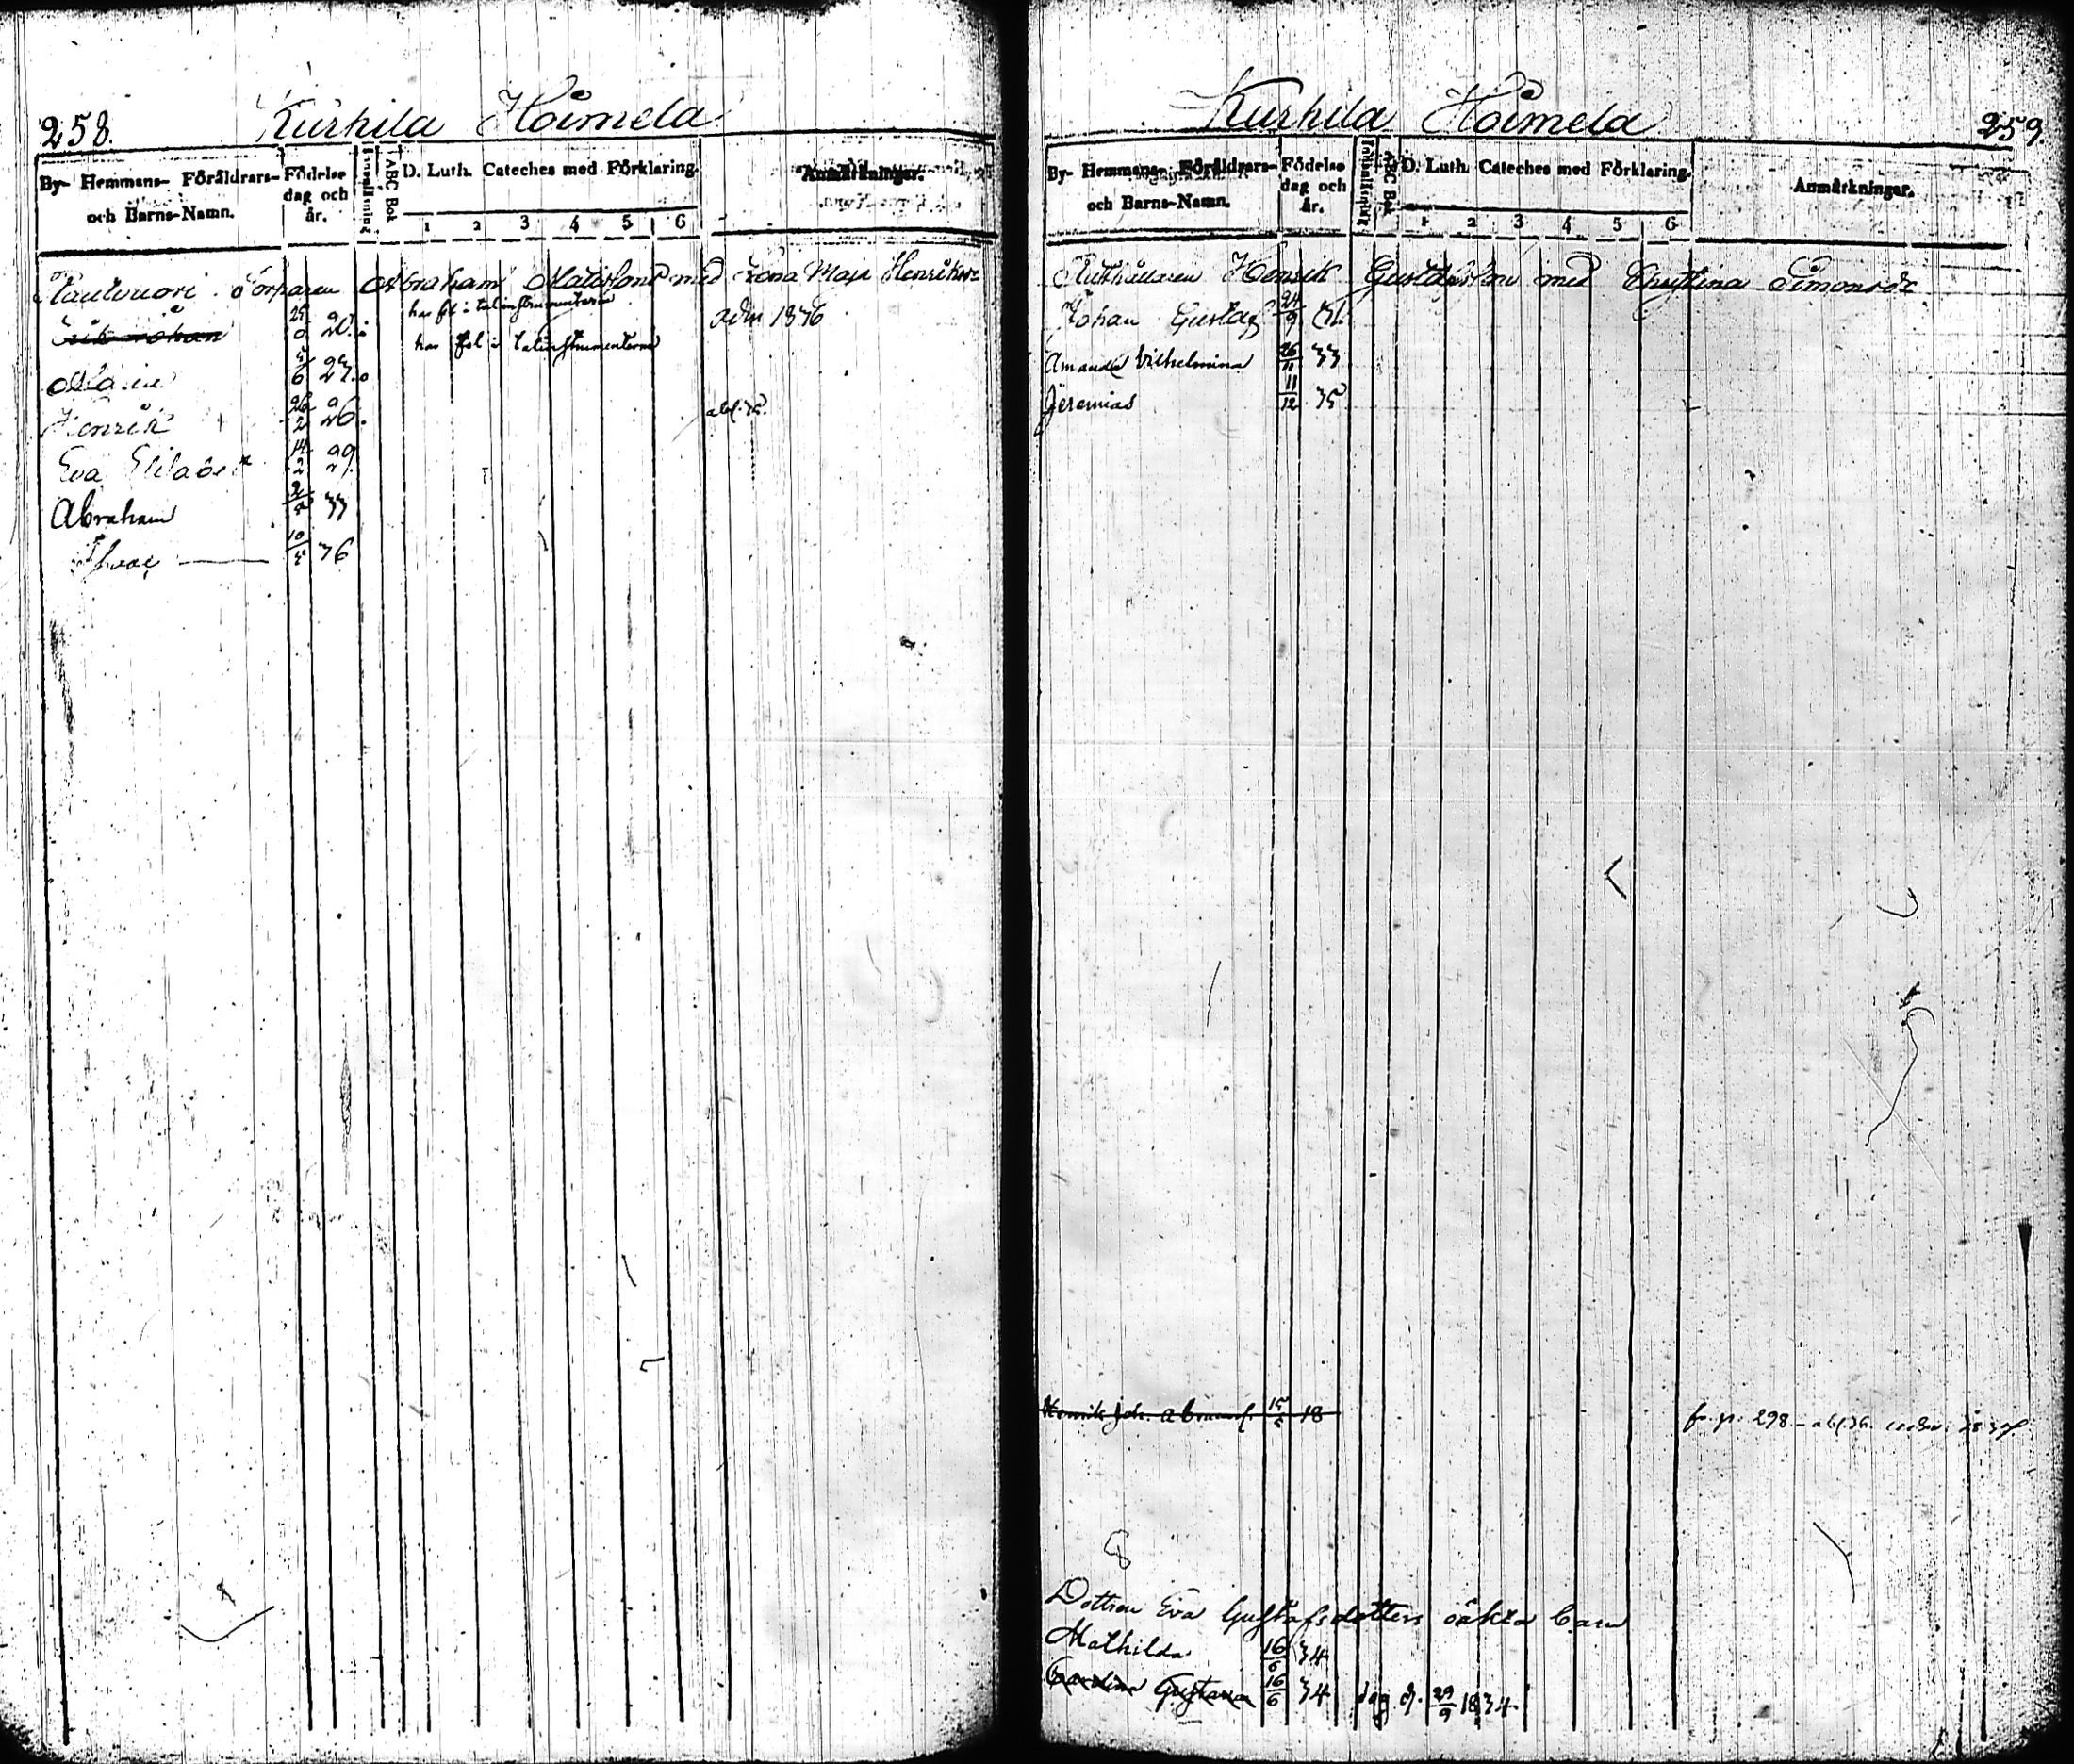 258. Kurkila Hoimela
By- Hemmans- Föräldrars- och Barns-Namn. Födelse dag och år. Innanläsning ABC Bok D. Luth. Cateches med Förklaring. 1 2 3 4 5 6 Anmärkningar.
Torparen Abraham Matsson med Lena Maja Henriksdr
Erik Johan 20. har fel i talinstrumenterna adm 1836
Maria 5/6 24. har fel i talinstrumenterna
Henrik 26/2 26.
Eva Elisabet 14/2 29.
Abraham 2/5 33
Isaac 10/5 36
Kurkila Hoimela 259.
By- Hemmans- Föräldrars- och Barns-Namn. Födelse dag och år. Innanläsning ABC Bok D. Luth. Cateches med Förklaring. 1 2 3 4 5 6 Anmärkningar.
Rusthållaren Henrik Gustafsson med Christina Simonsdr
Johan Gustaf 24/9 31.
Amanda Vilhelmina 26/11 33
Jeremias 11/12 35
Henrik Joh. Abramss. 15/5 18 fr. p. 298
Dottren Eva Gustafsdotters oäkta barn
Mathilda 16/6 34
Carolina Gustava 16/6 34 dog d. 29/9 1834